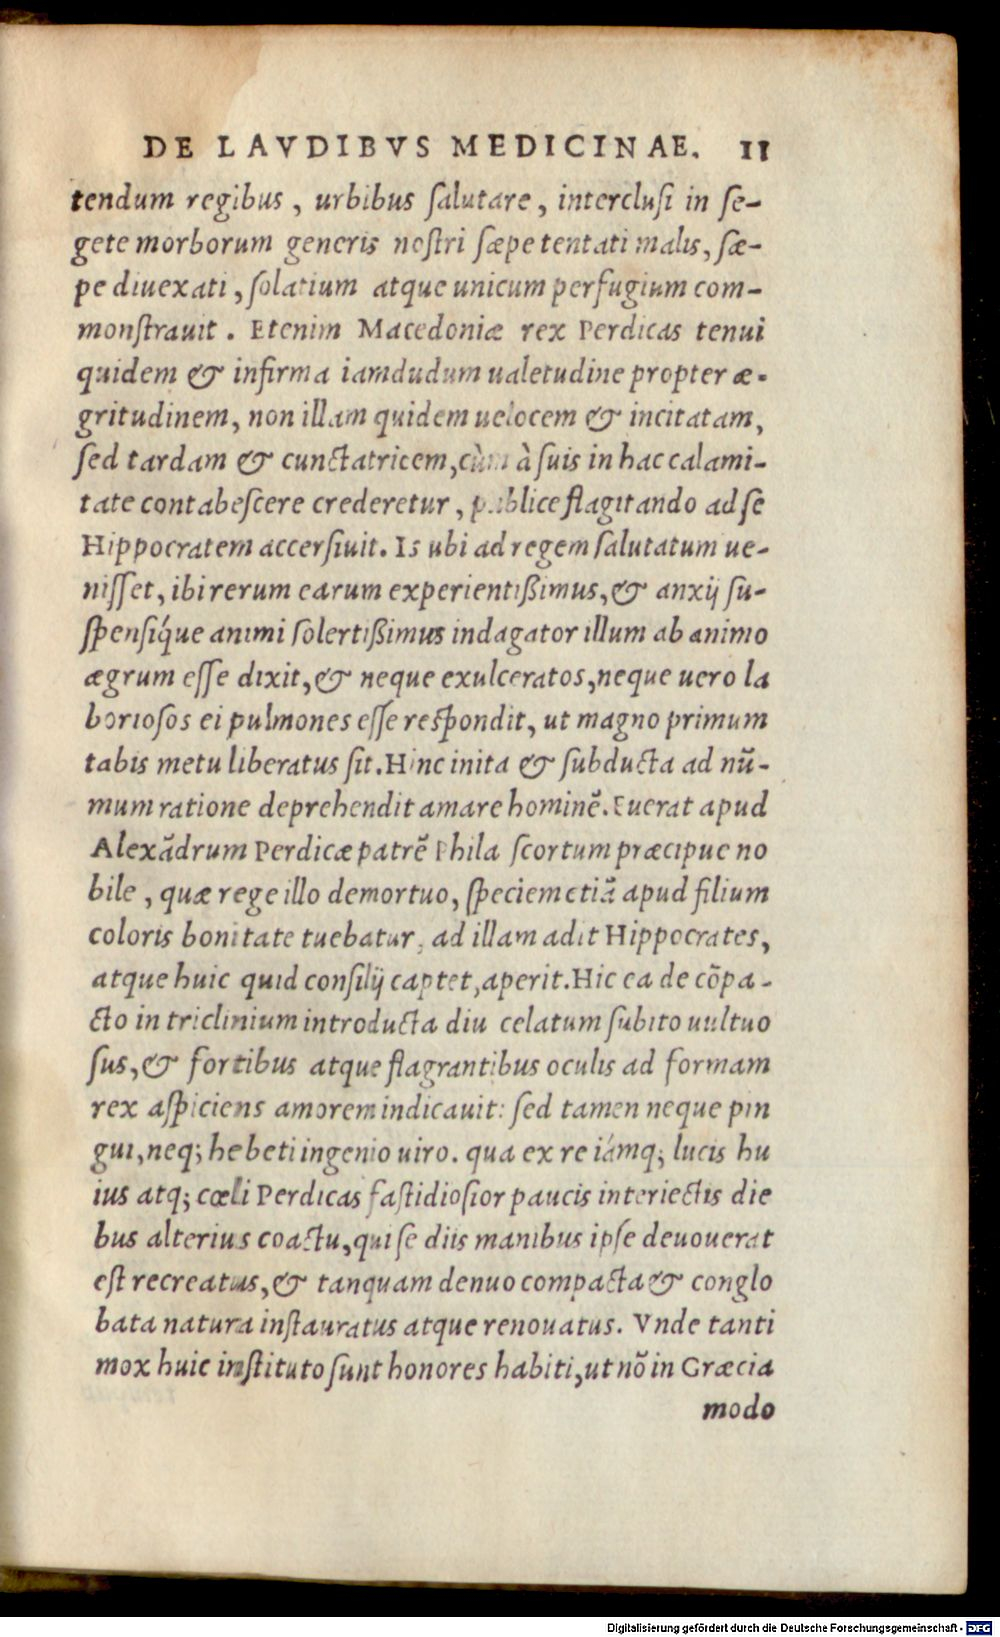 DE LAVDIBVS MEDICINAE. 11
tendum regibus, urbibus salutare, interclusi in se-
gete morborum generis nostri sæpe tentati malis, sæ-
pe diuexati, solatium atque unicum perfugium com-
monstrauit. Etenim Macedoniæ rex Perdicas tenui
quidem & infirma iamdudum ualetudine propter æ-
gritudinem, non illam quidem uelocem & incitatam,
sed tardam & cunctatricem, cùm à suis in hac calami-
tate contabescere crederetur, publice flagitando ad se
Hippocratem accersiuit. Is ubi ad regem salutatum ue-
nisset, ibi rerum earum experientißimus, & anxij su-
spensiq́ue animi solertißimus indagator illum ab animo
ægrum esse dixit, & neque exulceratos, neque uero la
boriosos ei pulmones esse respondit, ut magno primum
tabis metu liberatus sit. Hinc inita & subducta ad nū-
mum ratione deprehendit amare hominẽ. Fuerat apud
Alexãdrum Perdicæ patrẽ Phila scortum præcipue no
bile, quæ rege illo demortuo, speciem etiã apud filium
coloris bonitate tuebatur, ad illam adit Hippocrates,
atque huic quid consilij captet, aperit. Hic ea de cõpa-
cto in triclinium introducta diu celatum subito uultuo
sus, & fortibus atque flagrantibus oculis ad formam
rex aspiciens amorem indicauit: sed tamen neque pin
gui, neq; hebeti ingenio uiro. qua ex re iámq; lucis hu
ius atq; cœli Perdicas fastidiosior paucis interiectis die
bus alterius coactu, qui se diis manibus ipse deuouerat
est recreatus, & tanquam denuo compacta & conglo
bata natura instauratus atque renouatus. Vnde tanti
mox huic instituto sunt honores habiti, ut nõ in Græcia
modo
Digitalisierung gefördert durch die Deutsche Forschungsgemeinschaft - DFG